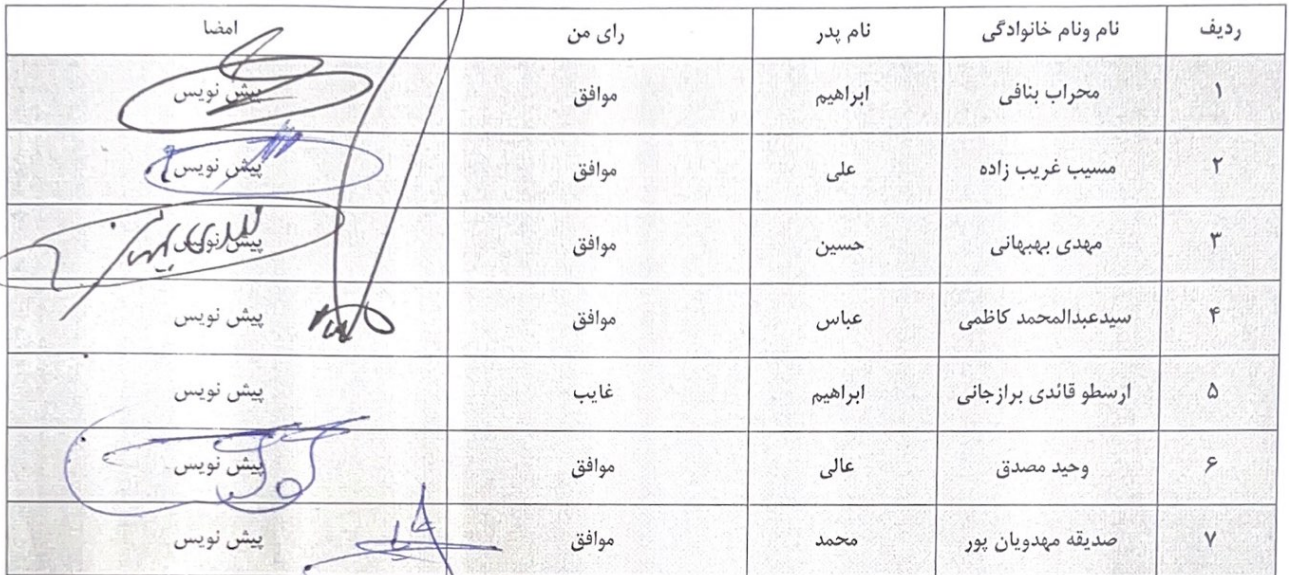 ردیف نام ونام خانوادگی نام پدر رای من امضا
۱ محراب بنافی ابراهیم موافق پیش نویس
۲ مسیب غریب زاده علی موافق پیش نویس
۳ مهدی بهبهانی حسین موافق پیش نویس
۴ سیدعبدالمحمد کاظمی عباس موافق پیش نویس
۵ ارسطو قائدی برازجانی ابراهیم غایب پیش نویس
۶ وحید مصدق عالی موافق پیش نویس
۷ صدیقه مهدویان پور محمد موافق پیش نویس